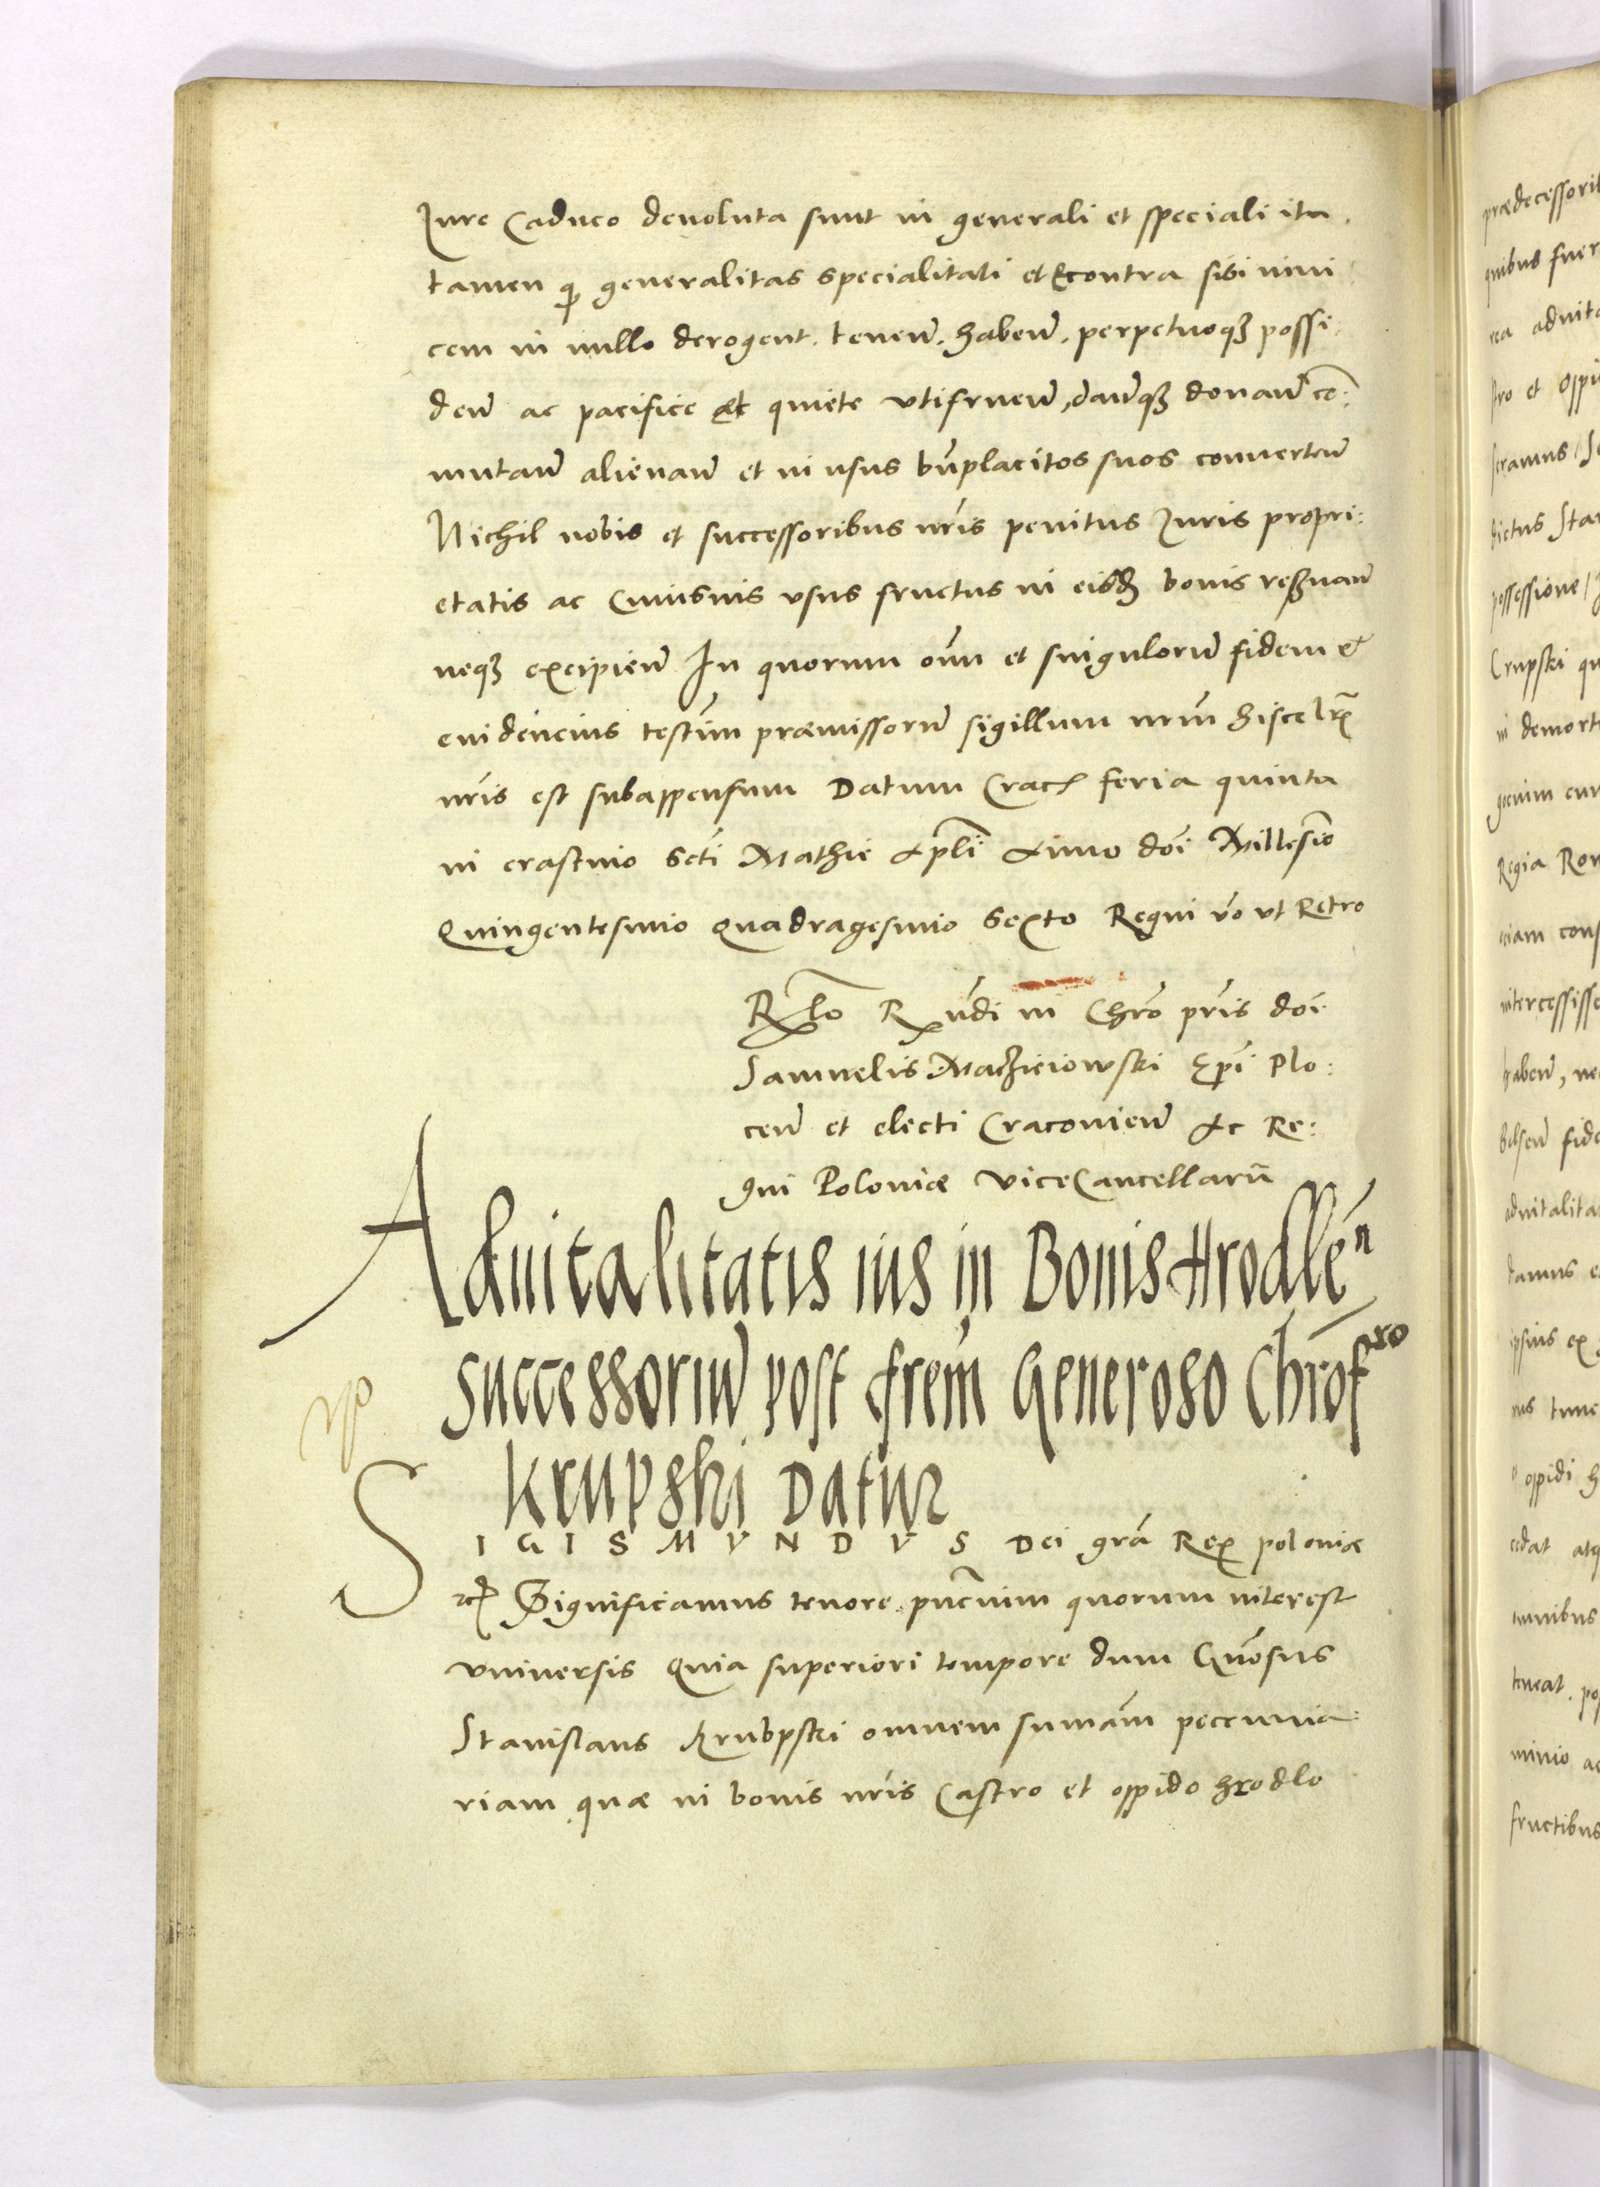 Iure Caduco devoluta sunt in generali et speciali ita
tamen q generalitas specialitati et Econtra sibi invi
cem in nullo derogent. teneñ. habeñ. perpetuoqȝ possi:
deñ ac pacifice et quiete utifrueñ, dañqȝ donañ cõ:
mutañ alienañ et in usus bñplacitos suos converteñ
Nichil nobis et successoribus nris penitus Iuris propri:
etatis ac Cuiusvis usus fructus in eisdȝ bonis reßvañ
neqȝ excipieñ In quorum oĩm et singulorũ fidem &
evidencius testim præmissorũ sigillum nrm hisce lrꝭ
nris est subappensum Datum Crač feria quinta
in crastino Scti Mathie Apli Anno doĩ Millesĩo
Quingentesimo Quadragesimo Sexto Regni vo ut Retro
Rlo Rñdi in Chro pris doĩ
Samuelis Macȝieiowski Epĩ Plo:
ceñ et electi Cracovieñ Ac Re:
gni Poloniæ ViceCancellarii
Advitalitatis ius in Bonis Hrodleñ
successoriũ post frem Generoso Chrof ro
Krupski Datur
SIGISMVNDVS Dei gra Rex poloniæ
ꝛcꝭ Significamus tenore pñcium quorum interest
Universis Quia superiori tempore dum Gñosus
Stanislaus Krubpski omnem sumam peccunia:
riam quæ in bonis nris Castro et oppido hrodlo
prædecessorib
quibus fuer
rea advita
stro et Oppi
dictus Stan
possessione
Crupski qu
in demort
Regia Rom
ciam cons
intercessisse
habeñ, ne
Belseñ fide
advitalita
damus e
ipsius ex
rus tunc
oppidi h
cedat atq
omnibus
teneat. po
minio ac
fructibus